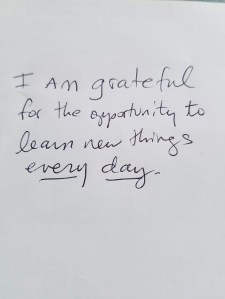 I Am grateful
for the opportunity to
learn new things
every day.